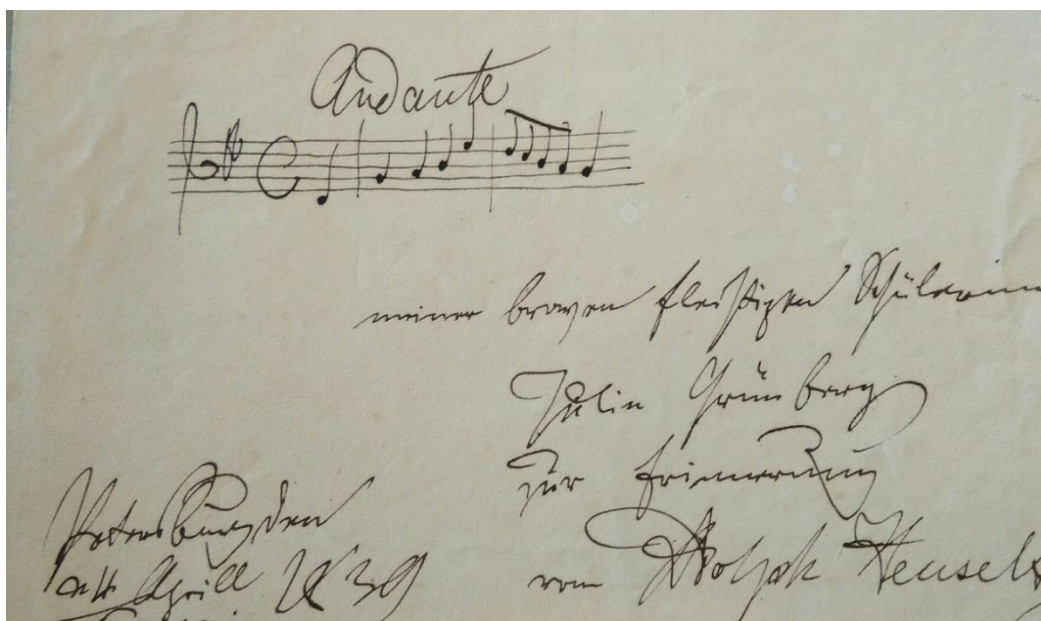 Andante
meiner braven fleißigen Schülerin
Julie Grünberg
zur Erinnerung
von Adolph Henselt
Petersburg den
April 1839